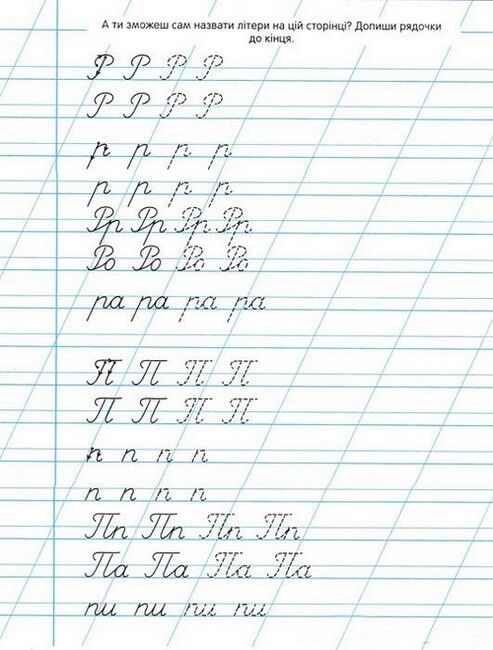 А ти зможеш сам назвати літери на цій сторінці? Допиши рядочки
до кінця.
Р Р Р Р
Р Р Р Р
р р р р
р р р р
Рр Рр Рр Рр
Ро Ро Ро Ро
ра ра ра ра
П П П П
П П П П
п п п п
п п п п
Пп Пп Пп Пп
Па Па Па Па
пи пи пи пи